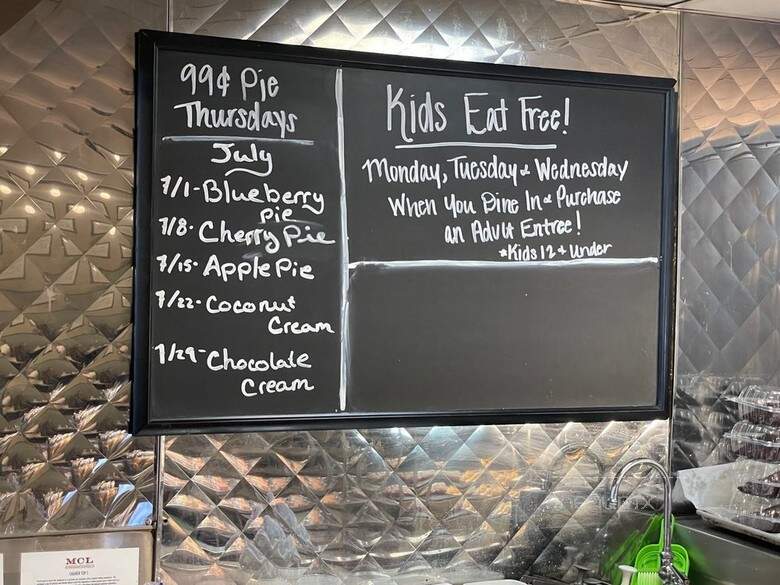 99¢ Pie
Thursdays
July
7/1-Blueberry
Pie
7/8-Cherry Pie
7/15-Apple Pie
7/22-Coconut
Cream
7/29-Chocolate
Cream
Kids Eat Free!
Monday, Tuesday & Wednesday
When you Dine In & Purchase
an Adult Entree!
*Kids 12 + Under
MCL